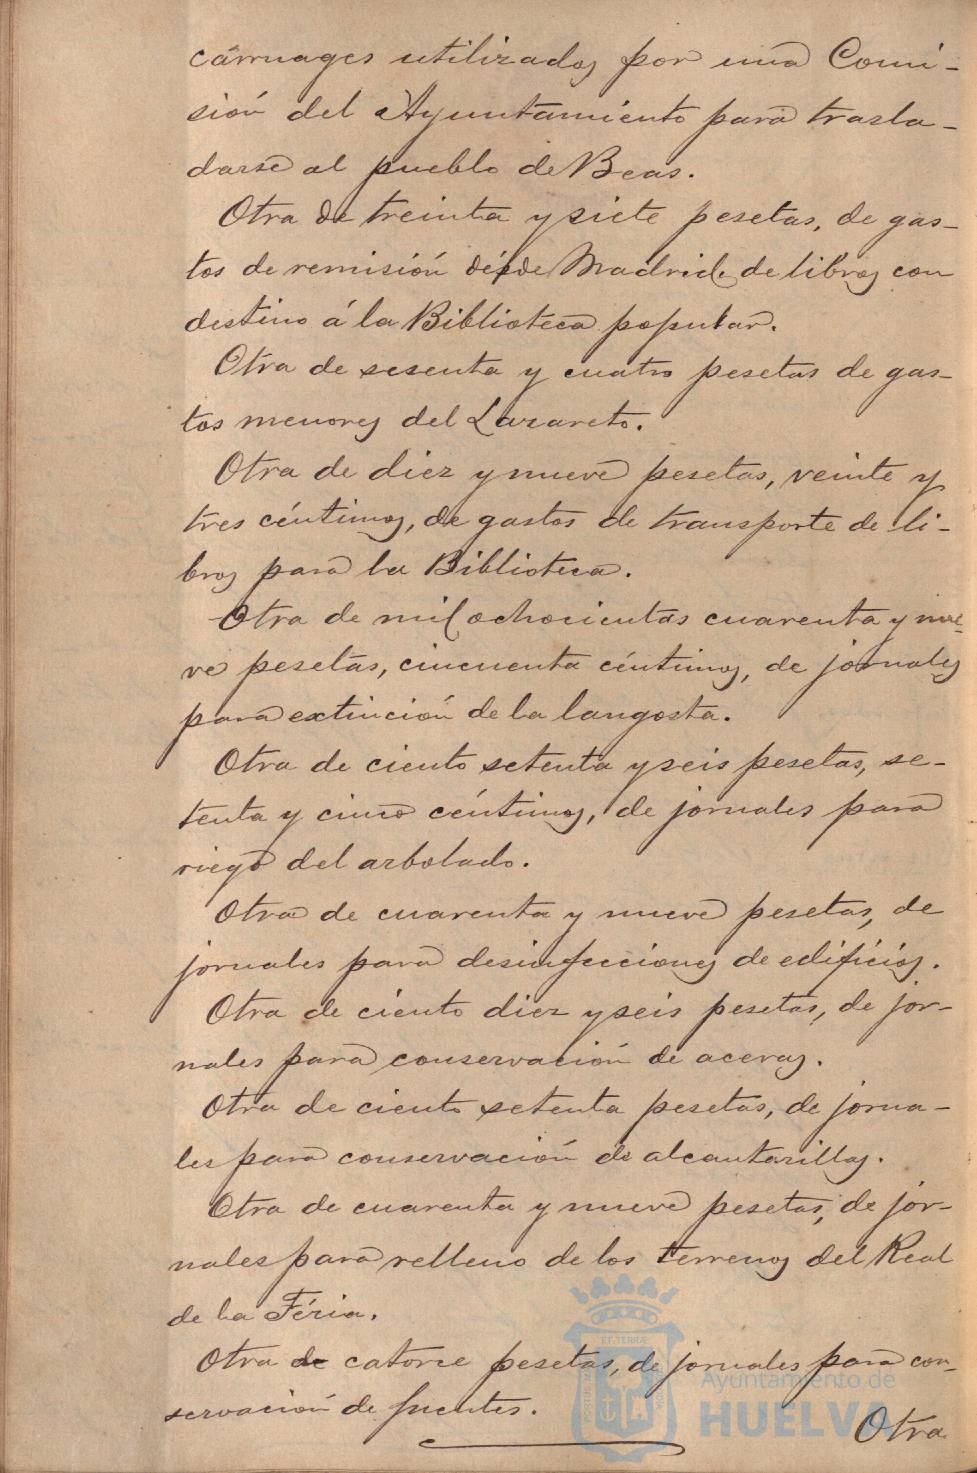 cárruages utilizados por una Comi-
sión del Ayuntamiento para trasla-
darse al pueblo de Beas.
Otra de treinta y siete pesetas, de gas-
tos de remisión desde Madrid de libros con
destino á la Biblioteca popular.
Otra de sesenta y cuatro pesetas de gas-
tos menores del Lazareto.
Otra de diez y nueve pesetas, veinte y
tres céntimos, de gastos de transporte de li-
bros para la Biblioteca.
Otra de mil ochocientas cuarenta y nue-
ve pesetas, cincuenta céntimos, de jornales
para extinción de la langosta.
Otra de ciento setenta y seis pesetas, se-
tenta y cinco céntimos, de jornales para
riego del arbolado.
Otra de cuarenta y nueve pesetas, de
jornales para desinfecciones de edificios.
Otra de ciento diez y seis pesetas, de jor-
nales para conservación de aceras.
Otra de ciento setenta pesetas, de jorna-
les para conservación de alcantarillas.
Otra de cuarenta y nueve pesetas, de jor-
nales para relleno de los terrenos del Real
de la Féria.
Otra de catorce pesetas, de jornales para con-
servación de fuentes.
Otra
Ayuntamiento de
HUELVA